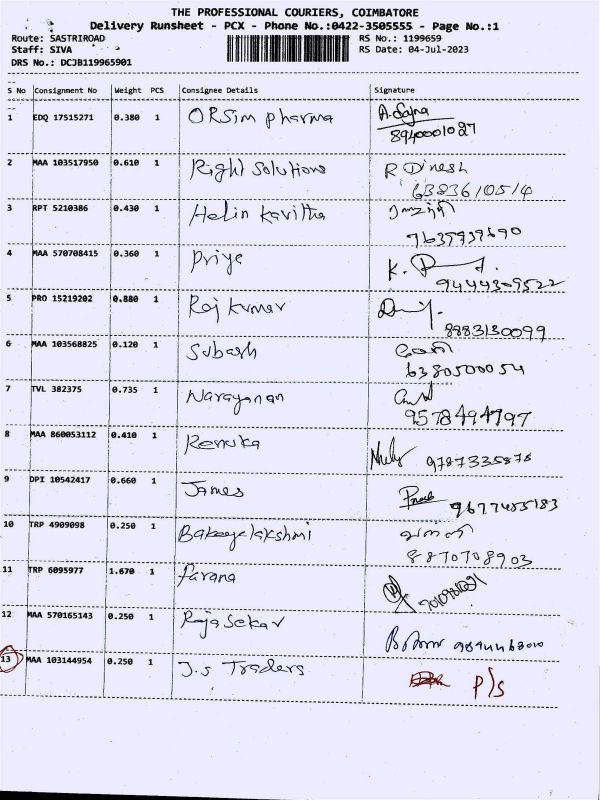 THE PROFESSIONAL COURIERS, COIMBATORE
Delivery Runsheet - PCX - Phone No.:0422-3505555 - Page No.:1
Route: SASTRIROAD RS No.: 1199659
Staff: SIVA RS Date: 04-Jul-2023
DRS No.: DCJB119965901
S No Consignment No Weight PCS Consignee Details Signature
1 EDQ 17515271 0.380 1 ORSim pharma A. Sajna
8940001027
2 MAA 103517950 0.610 1 Right Solutions R Dinesh
6383610514
3 RPT 5210386 0.430 1 Helin Kavitha
7639939690
4 MAA 570708415 0.360 1 Priya K.
9444309522
5 PRO 15219202 0.880 1 Raj kumar
8883130099
6 MAA 103568825 0.120 1 Subash
6380500054
7 TVL 382375 0.735 1 Narayanan
9578494797
8 MAA 860053112 0.410 1 Renuka 9787335878
9 DPI 10542417 0.660 1 James 9677485183
10 TRP 4909098 0.250 1 Bakeyalakshmi
8870708903
11 TRP 6095977 1.670 1 Parana
12 MAA 570165143 0.250 1 Rajasekar
13 MAA 103144954 0.250 1 J.s Traders P/S